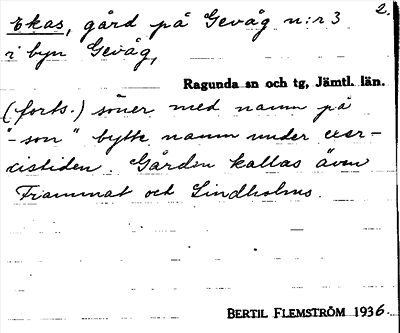 Ekas, gård på Gevåg n:r 3 2.
i byn Gevåg,
Ragunda sn och tg, Jämtl. län.
(forts.) söner med namn på
"-son" bytte namn under exer-
cistiden. Gården kallas även
Frammat och Lindholms.
BERTIL FLEMSTRÖM 1936.